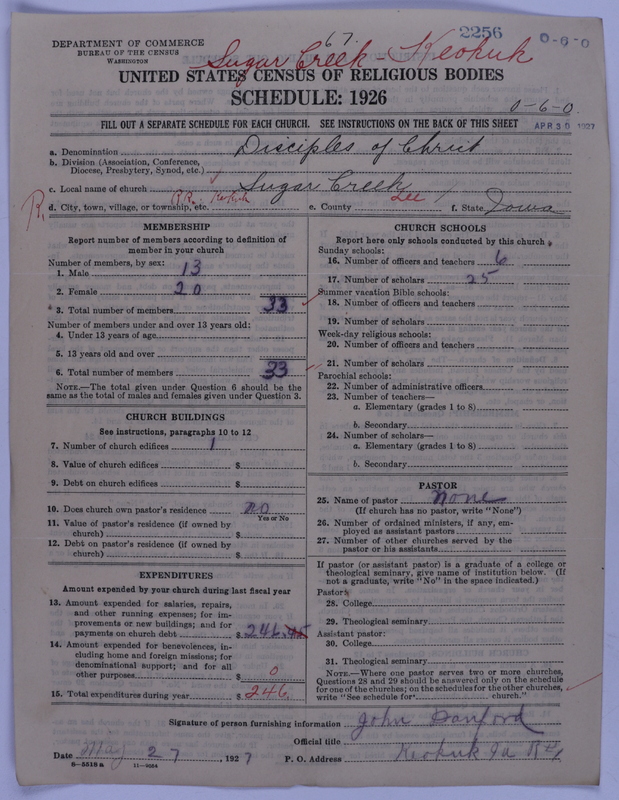 67.
2256
0-6-0
DEPARTMENT OF COMMERCE
BUREAU OF THE CENSUS
WASHINGTON
Sugar Creek - Keokuk
UNITED STATES CENSUS OF RELIGIOUS BODIES
SCHEDULE: 1926
0-6-0
FILL OUT A SEPARATE SCHEDULE FOR EACH CHURCH. SEE INSTRUCTIONS ON THE BACK OF THIS SHEET
APR 30 1927
a. Denomination Disciples of Christ
b. Division (Association, Conference,
Diocese, Presbytery, Synod, etc.)
c. Local name of church Sugar Creek
R1
d. City, town, village, or township, etc. R.R. Keokuk e. County Lee f. State Iowa
MEMBERSHIP
Report number of members according to definition of
member in your church
Number of members, by sex:
1. Male 13
2. Female 20
3. Total number of members 33
Number of members under and over 13 years old:
4. Under 13 years of age
5. 13 years old and over
6. Total number of members 33
NOTE.—The total given under Question 6 should be the
same as the total of males and females given under Question 3.
CHURCH BUILDINGS
See instructions, paragraphs 10 to 12
7. Number of church edifices 1
8. Value of church edifices $
9. Debt on church edifices $
10. Does church own pastor's residence no
Yes or No
11. Value of pastor's residence (if owned by
church) $
12. Debt on pastor's residence (if owned by
church) $
EXPENDITURES
Amount expended by your church during last fiscal year
13. Amount expended for salaries, repairs,
and other running expenses; for im-
provements or new buildings; and for
payments on church debt $ 246.45
14. Amount expended for benevolences, in-
cluding home and foreign missions; for
denominational support; and for all
other purposes $ 0
15. Total expenditures during year $ 246.
CHURCH SCHOOLS
Report here only schools conducted by this church
Sunday schools:
16. Number of officers and teachers 6
17. Number of scholars 25
Summer vacation Bible schools:
18. Number of officers and teachers
19. Number of scholars
Week-day religious schools:
20. Number of officers and teachers
21. Number of scholars
Parochial schools:
22. Number of administrative officers
23. Number of teachers—
a. Elementary (grades 1 to 8)
b. Secondary
24. Number of scholars—
a. Elementary (grades 1 to 8)
b. Secondary
PASTOR
25. Name of pastor None
(If church has no pastor, write "None")
26. Number of ordained ministers, if any, em-
ployed as assistant pastors
27. Number of other churches served by the
pastor or his assistants
If pastor (or assistant pastor) is a graduate of a college or
theological seminary, give name of institution below. (If
not a graduate, write "No" in the space indicated.)
Pastor:
28. College
29. Theological seminary
Assistant pastor:
30. College
31. Theological seminary
NOTE.—Where one pastor serves two or more churches,
Questions 28 and 29 should be answered only on the schedule
for one of the churches; on the schedules for the other churches,
write "See schedule for church."
Signature of person furnishing information John Sanford
Official title
Date May 27, 1927 P. O. Address Keokuk Ia R#1
8-5518a 11-9664